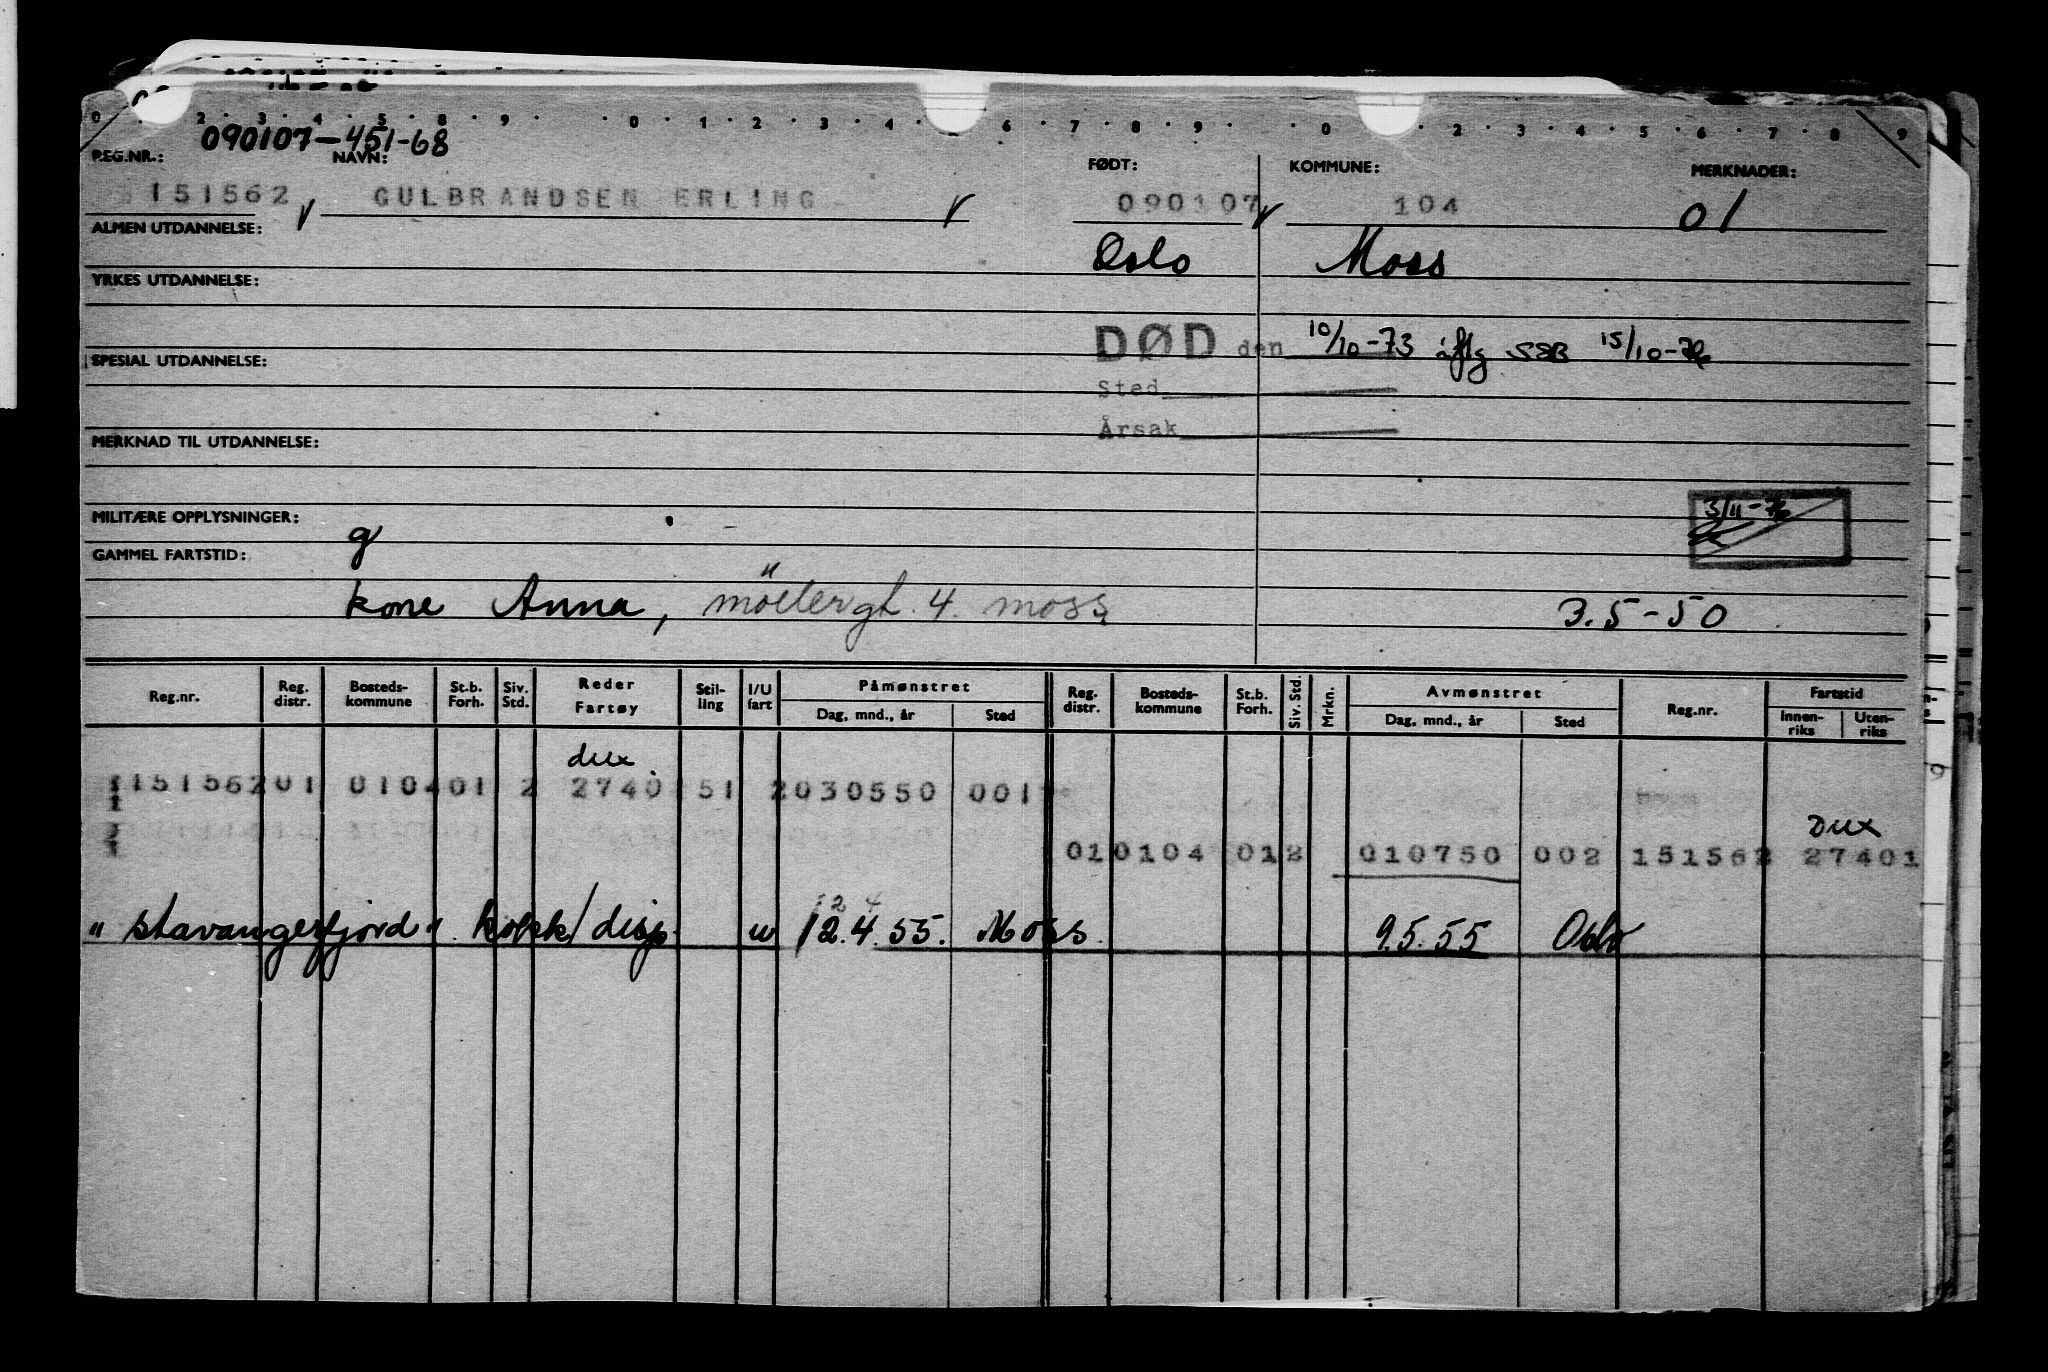 090107-451-68
REG.NR.: NAVN: FØDT: KOMMUNE: MERKNADER:
151562 GULBRANDSEN ERLING 090107 104 01
ALMEN UTDANNELSE: Oslo Moss
YRKES UTDANNELSE:
DØD den 10/10-73 iflg SSB 15/10-76
SPESIAL UTDANNELSE:
Sted
Årsak
MERKNAD TIL UTDANNELSE:
MILITÆRE OPPLYSNINGER: 3/11-76
g
GAMMEL FARTSTID:
kone Anna, möllergt. 4. moss 3.5-50
Reg.nr. Reg. distr. Bosteds-kommune St.b. Forh. Siv. Std. Reder Fartøy Stil-ling I/U fart Påmønstret Dag, mnd., år Sted Reg. distr. Bosteds-kommune St.b. Forh. Siv. Std. Mrkn. Avmønstret Dag, mnd., år Sted Reg.nr. Fartstid Innen-riks Uten-riks
dux
151562 01 0104 01 2 2740 151 2 030550 001
Dux
01 0104 01 2 010750 002 151562 27401
12 4
"Stavangerfjord". kokk/disp. u 12.4.55. Moss 9.5.55 Oslo